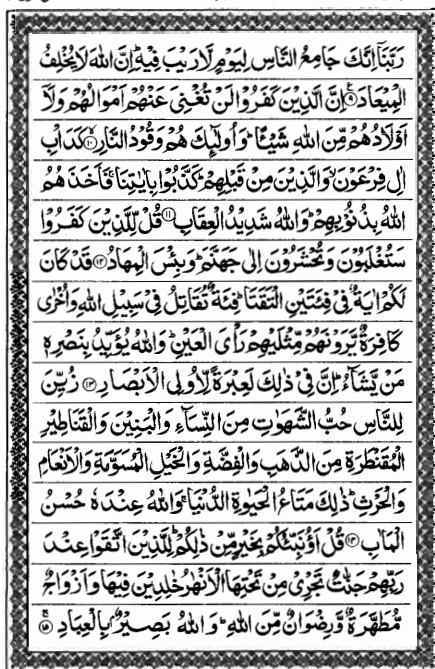 رَبَّنَاۤ اِنَّكَ جَامِعُ النَّاسِ لِيَوْمٍ لَّا رَيْبَ فِيْهِ ؕ اِنَّ اللّٰهَ لَا يُخْلِفُ
الْمِيْعَادَ ۹ اِنَّ الَّذِيْنَ كَفَرُوْا لَنْ تُغْنِيَ عَنْهُمْ اَمْوَالُهُمْ وَلَاۤ
اَوْلَادُهُمْ مِّنَ اللّٰهِ شَيْـًٔا ؕ وَاُولٰٓئِكَ هُمْ وَقُوْدُ النَّارِ ۱۰ كَدَاْبِ
اٰلِ فِرْعَوْنَ ۙ وَالَّذِيْنَ مِنْ قَبْلِهِمْ ؕ كَذَّبُوْا بِاٰيٰتِنَا ۚ فَاَخَذَهُمُ
اللّٰهُ بِذُنُوْبِهِمْ ؕ وَاللّٰهُ شَدِيْدُ الْعِقَابِ ۱۱ قُلْ لِّلَّذِيْنَ كَفَرُوْا
سَتُغْلَبُوْنَ وَتُحْشَرُوْنَ اِلٰى جَهَنَّمَ ؕ وَبِئْسَ الْمِهَادُ ۱۲ قَدْ كَانَ
لَكُمْ اٰيَةٌ فِيْ فِئَتَيْنِ الْتَقَتَا ؕ فِئَةٌ تُقَاتِلُ فِيْ سَبِيْلِ اللّٰهِ وَاُخْرٰى
كَافِرَةٌ يَّرَوْنَهُمْ مِّثْلَيْهِمْ رَاْيَ الْعَيْنِ ؕ وَاللّٰهُ يُؤَيِّدُ بِنَصْرِهٖ
مَنْ يَّشَآءُ ؕ اِنَّ فِيْ ذٰلِكَ لَعِبْرَةً لِّاُولِي الْاَبْصَارِ ۱۳ زُيِّنَ
لِلنَّاسِ حُبُّ الشَّهَوٰتِ مِنَ النِّسَآءِ وَالْبَنِيْنَ وَالْقَنَاطِيْرِ
الْمُقَنْطَرَةِ مِنَ الذَّهَبِ وَالْفِضَّةِ وَالْخَيْلِ الْمُسَوَّمَةِ وَالْاَنْعَامِ
وَالْحَرْثِ ؕ ذٰلِكَ مَتَاعُ الْحَيٰوةِ الدُّنْيَا ۚ وَاللّٰهُ عِنْدَهٗ حُسْنُ
الْمَاٰبِ ۱۴ قُلْ اَؤُنَبِّئُكُمْ بِخَيْرٍ مِّنْ ذٰلِكُمْ ؕ لِلَّذِيْنَ اتَّقَوْا عِنْدَ
رَبِّهِمْ جَنّٰتٌ تَجْرِيْ مِنْ تَحْتِهَا الْاَنْهٰرُ خٰلِدِيْنَ فِيْهَا وَاَزْوَاجٌ
مُّطَهَّرَةٌ وَّرِضْوَانٌ مِّنَ اللّٰهِ ؕ وَاللّٰهُ بَصِيْرٌۢ بِالْعِبَادِ ۱۵